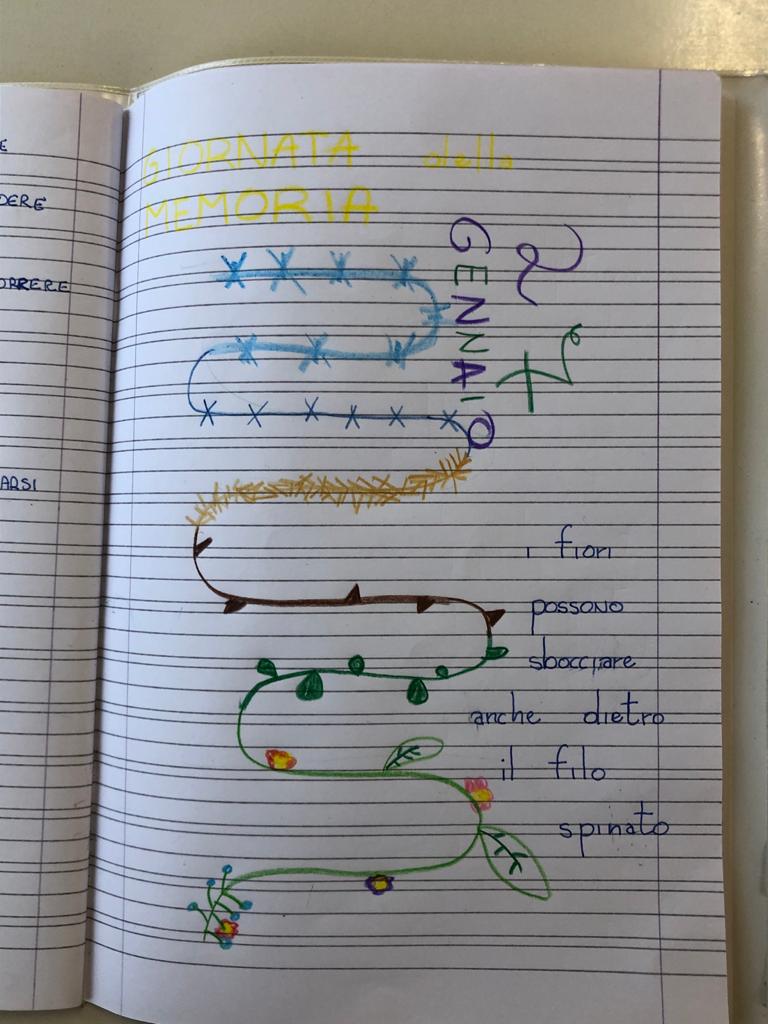 E
DERE
ORRERE
ARSI
GIORNATA della
MEMORIA
27
GENNAIO
i fiori
possono
sbocciare
anche dietro
il filo
spinato